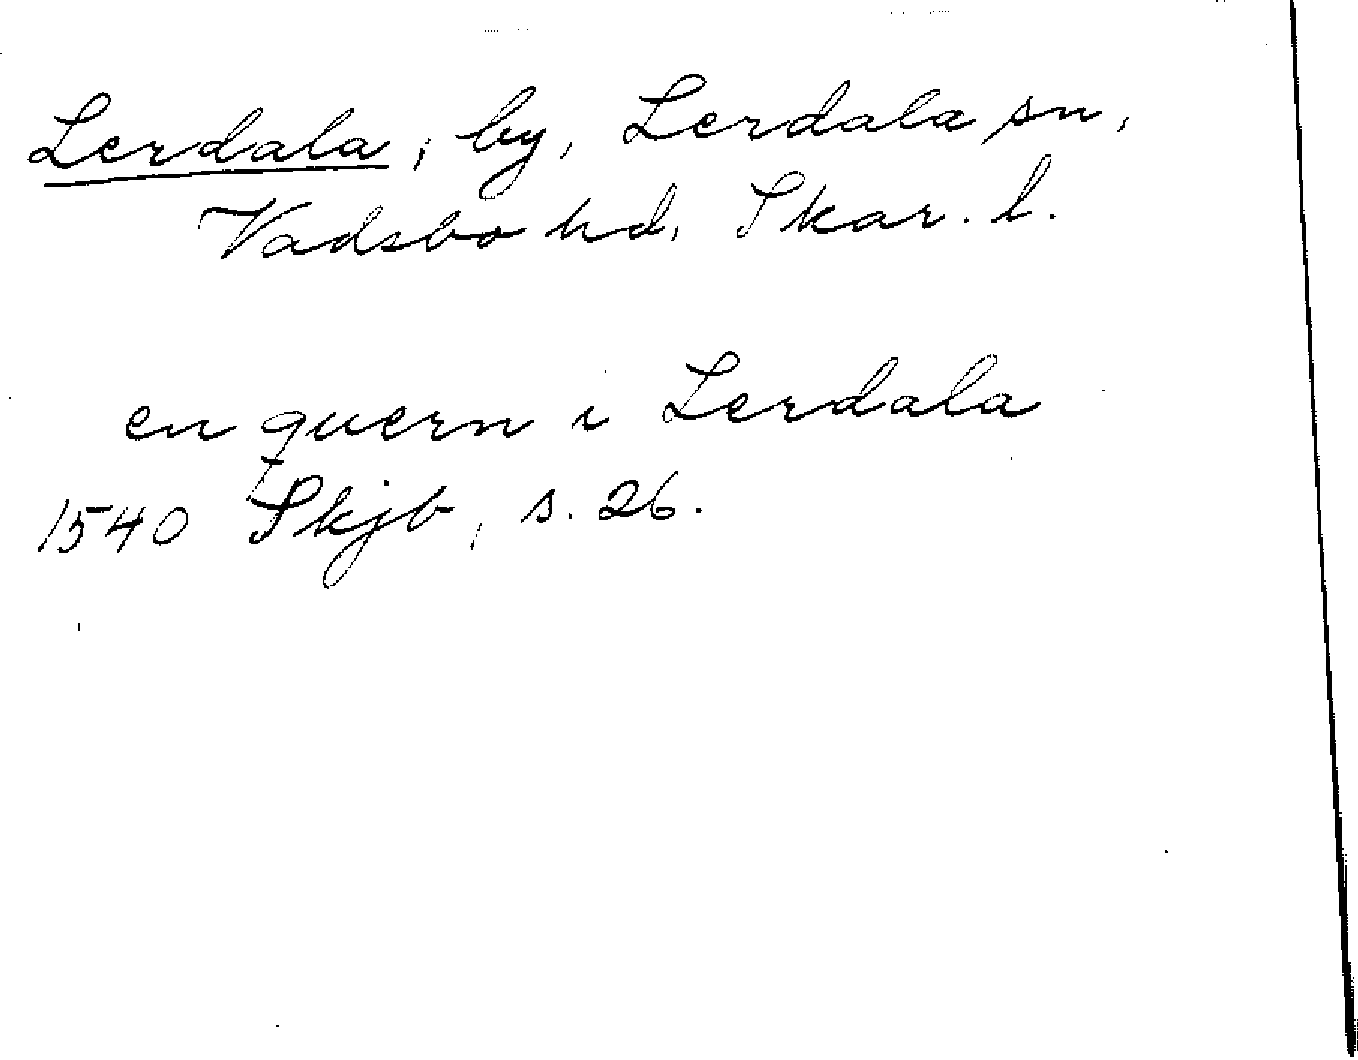 Lerdala, by, Lerdala sn,
Vadsbo hd, Skar. l.
en quern i Lerdala
1540 Skjb, s. 26.